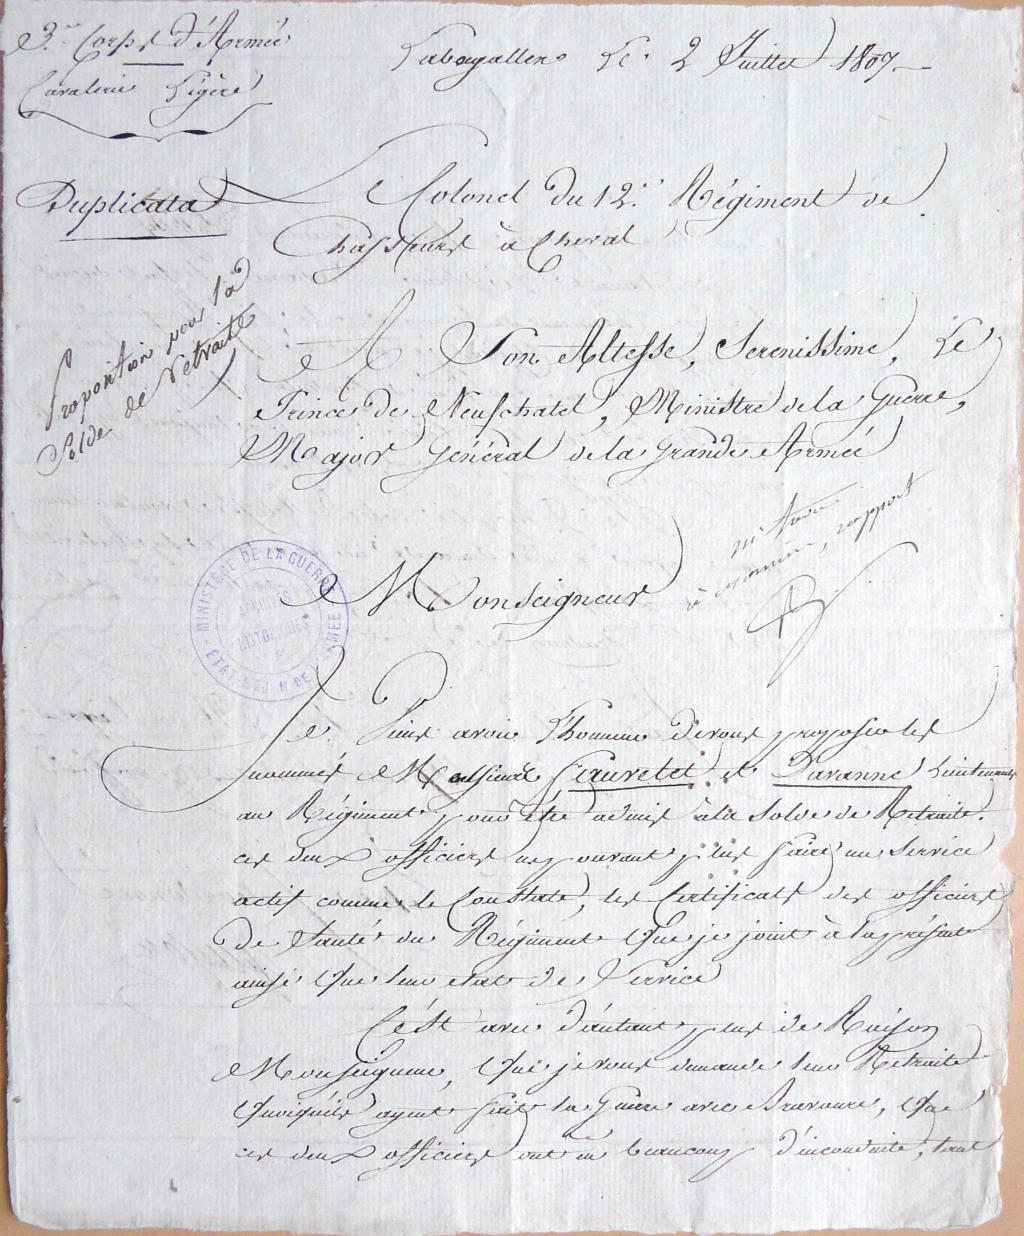 3.e Corps d'Armée
Cavalerie Légère
Labagallen Le 2 Juillet 1807.
Duplicata
Colonel du 12.e Régiment de
Chasseurs à Cheval
Proposition pour la
Solde de retraite
A Son Altesse, Serenissime, Le
Prince de Neufchatel, Ministre de la Guerre,
Major Général de la grande Armée
à examiner, rapport
Monseigneur
MINISTÈRE DE LA GUERRE
ARCHIVES
HISTORIQUES
ETAT-MAJOR DE L'ARMEE
Je Viens avoir L'honneur de vous proposer les
nommés Gauvelet et Davanne Lieutenants
au Régiment pour être admis à la Solde de Retraite.
ces deux officiers ne pouvant plus faire un Service
actif comme le Constate, les Certificats des officiers
de Santé du Régiment Que je joint à la présente
ainsi Que leur etat de Service
C'est avec d'autant plus de Raison
Monseigneur, Que je vous demande leur Retraite
Quoiqu'ils ayent fait la Guerre avec Bravoure, Que
ces deux officiers ont eu beaucoup d'inconduite, tant